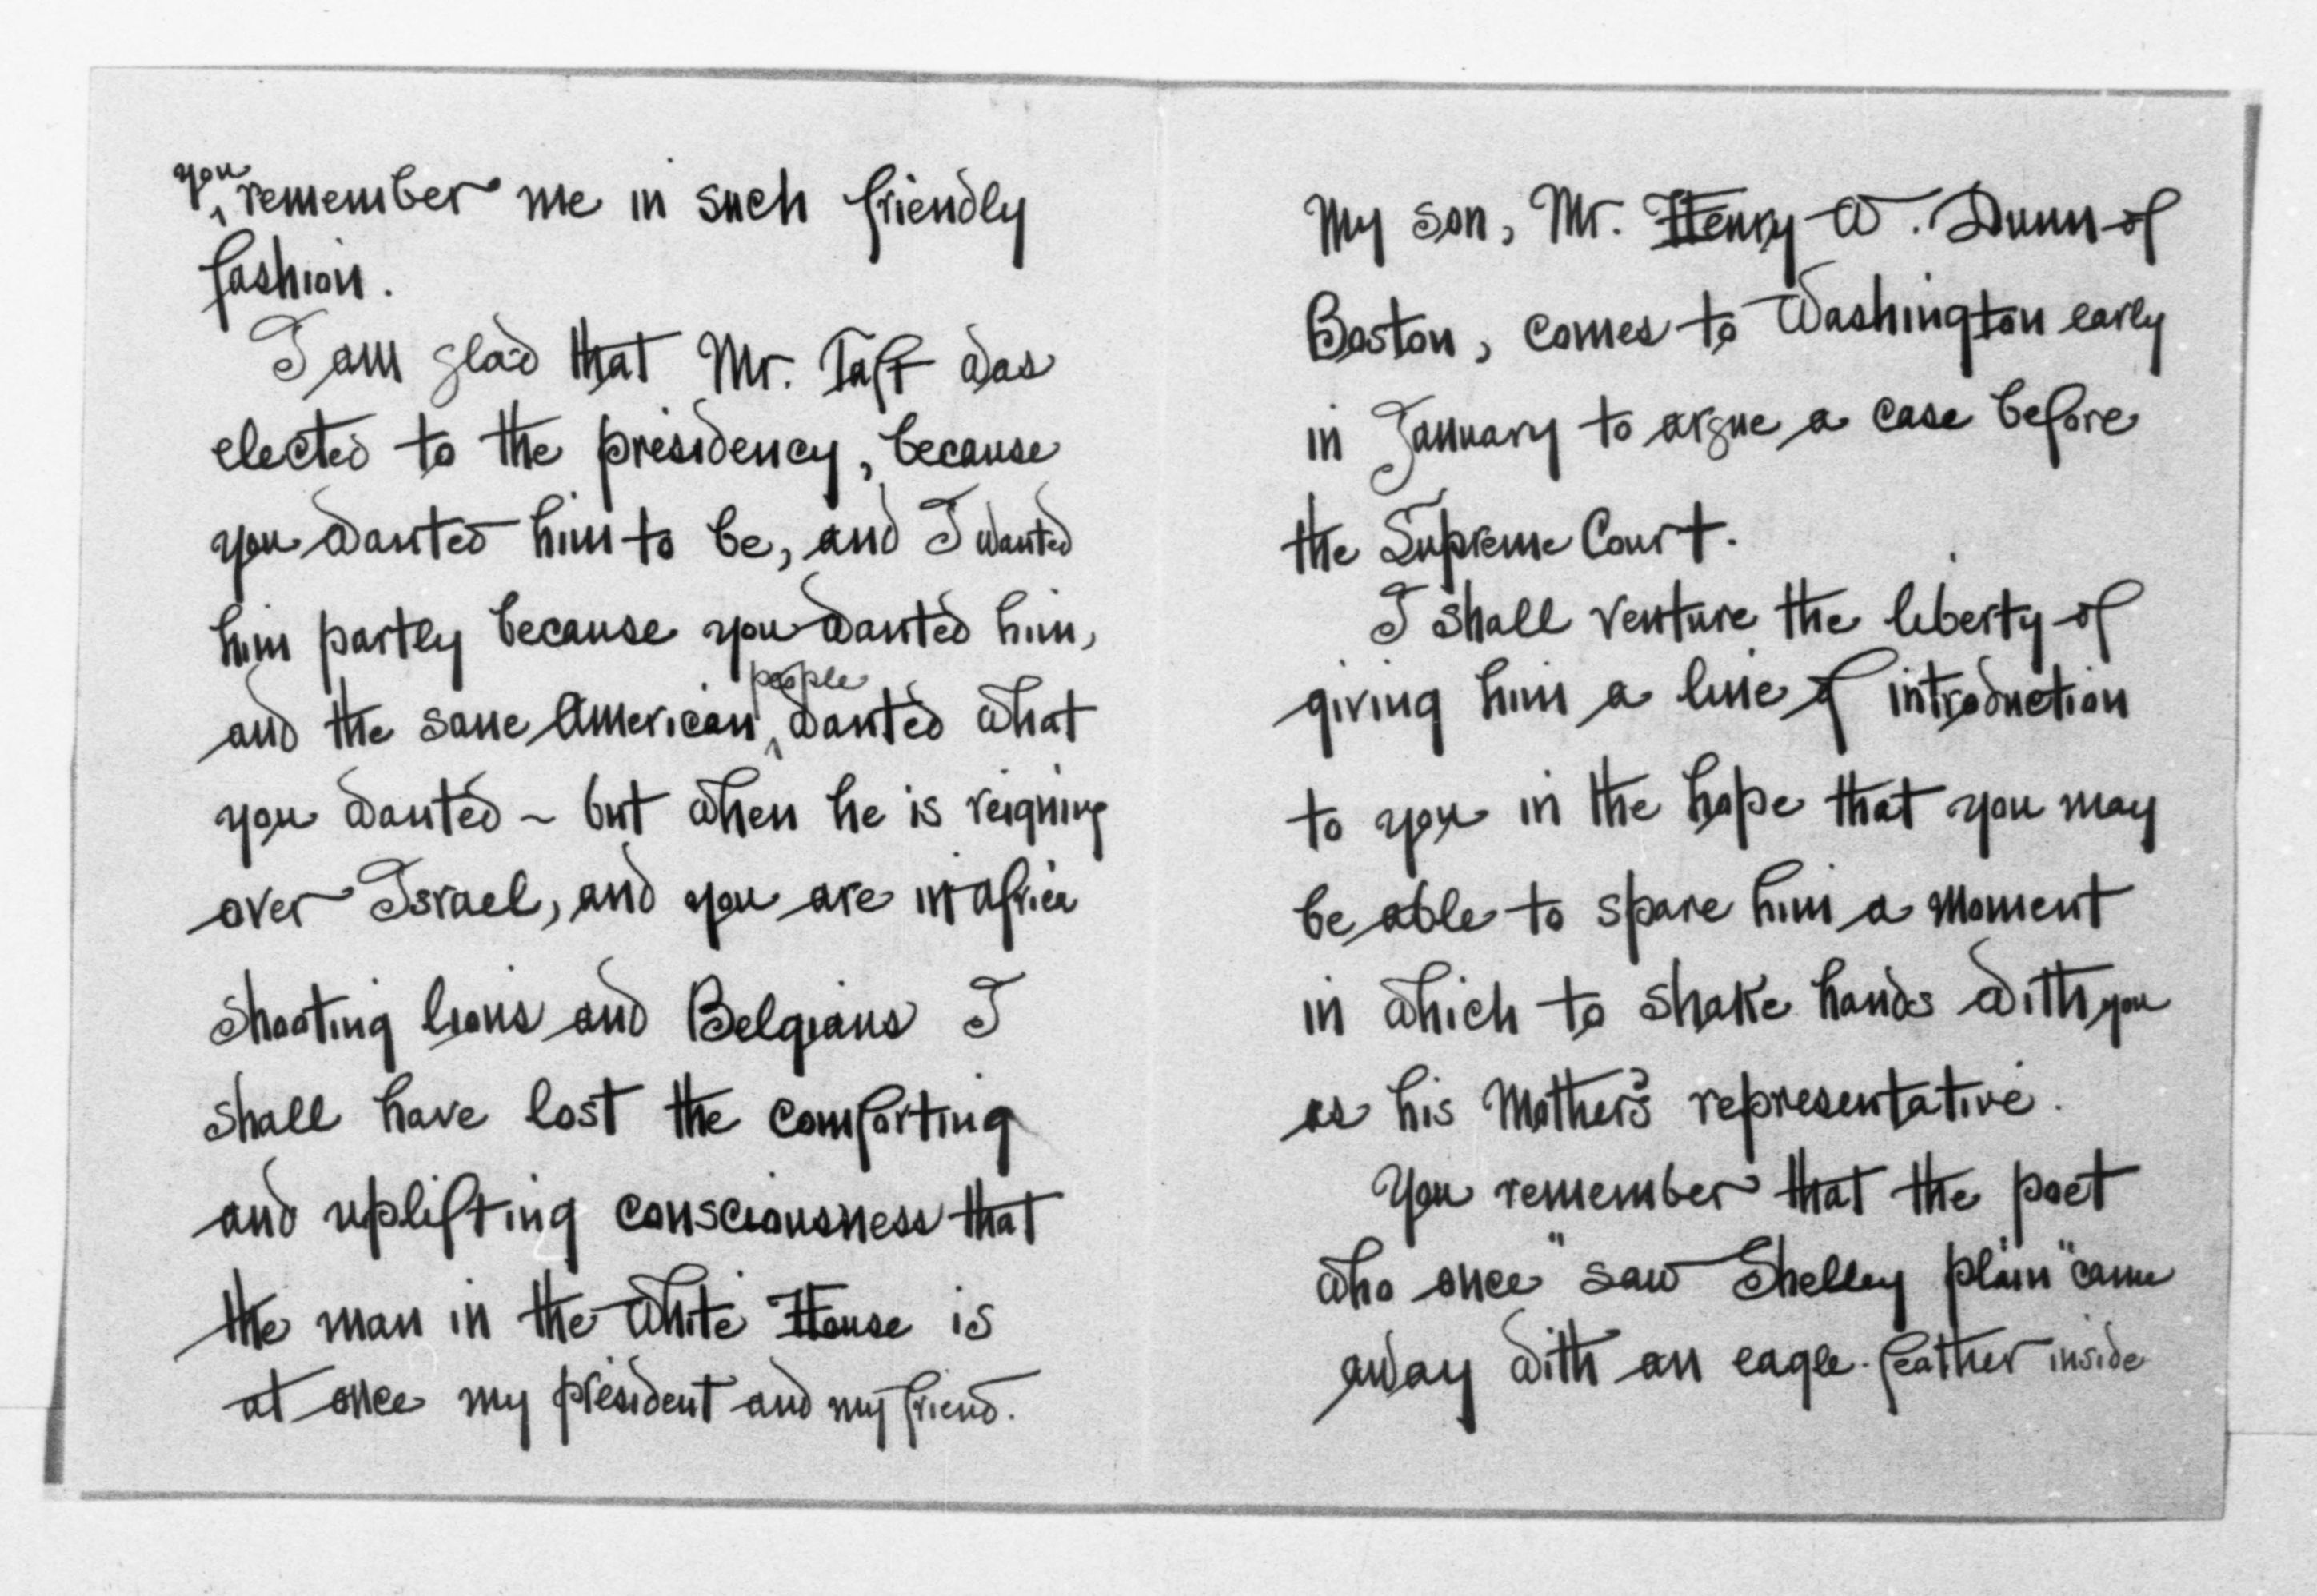 you remember me in such friendly
fashion.
I am glad that Mr. Taft was
elected to the presidency, because
you wanted him to be, and I wanted
him partly because you wanted him,
and the sane American people wanted what
you wanted ~ but when he is reigning
over Israel, and you are in Africa
shooting lions and Belgians I
shall have lost the comforting
and uplifting consciousness that
the man in the White House is
at once my president and my friend.
My son, Mr. Henry W. Dunn of
Boston, comes to Washington early
in January to argue a case before
the Supreme Court.
I shall venture the liberty of
giving him a line of introduction
to you in the hope that you may
be able to spare him a moment
in which to shake hands with you
as his Mother's representative.
You remember that the poet
who once "saw Shelley plain" came
away with an eagle-feather inside